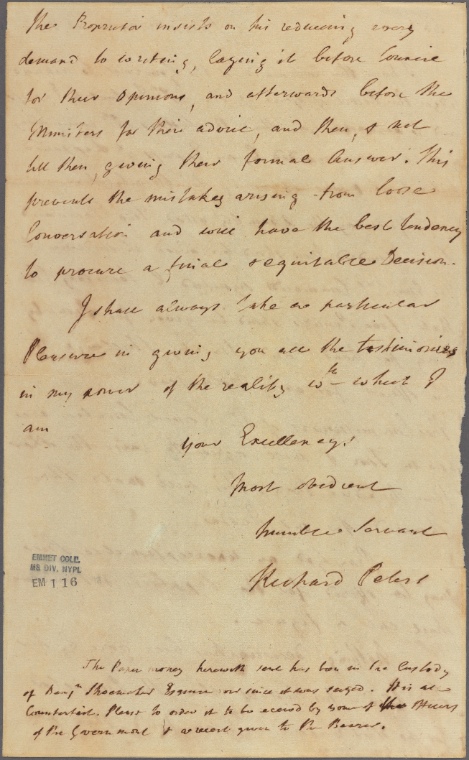 The Proprietor insists on his reducing every
demand to writing, laying it before Council
for their Opinions, and afterwards before the
Ministers for their advice, and then, & not
till then, giving their formal Answer. This
prevents the mistakes arising from loose
Conversation and will have the best tendency
to procure a final & equitable Decision.
I shall always take a particular
Pleasure in giving you all the testimonies
in my power of the reality wth which I
am
your Excellency's
most obedient
humble Servant
Richard Peters
EMMET COLL.
MS DIV. NYPL
EM 116
The Paper money herewith sent has been in the Custody
of Benjn Shoemaker Esquire ever since it was seized. It is all
Counterfeit. Please to order it to be received by some of the Officers
of the Government & a receit given to the Bearer.